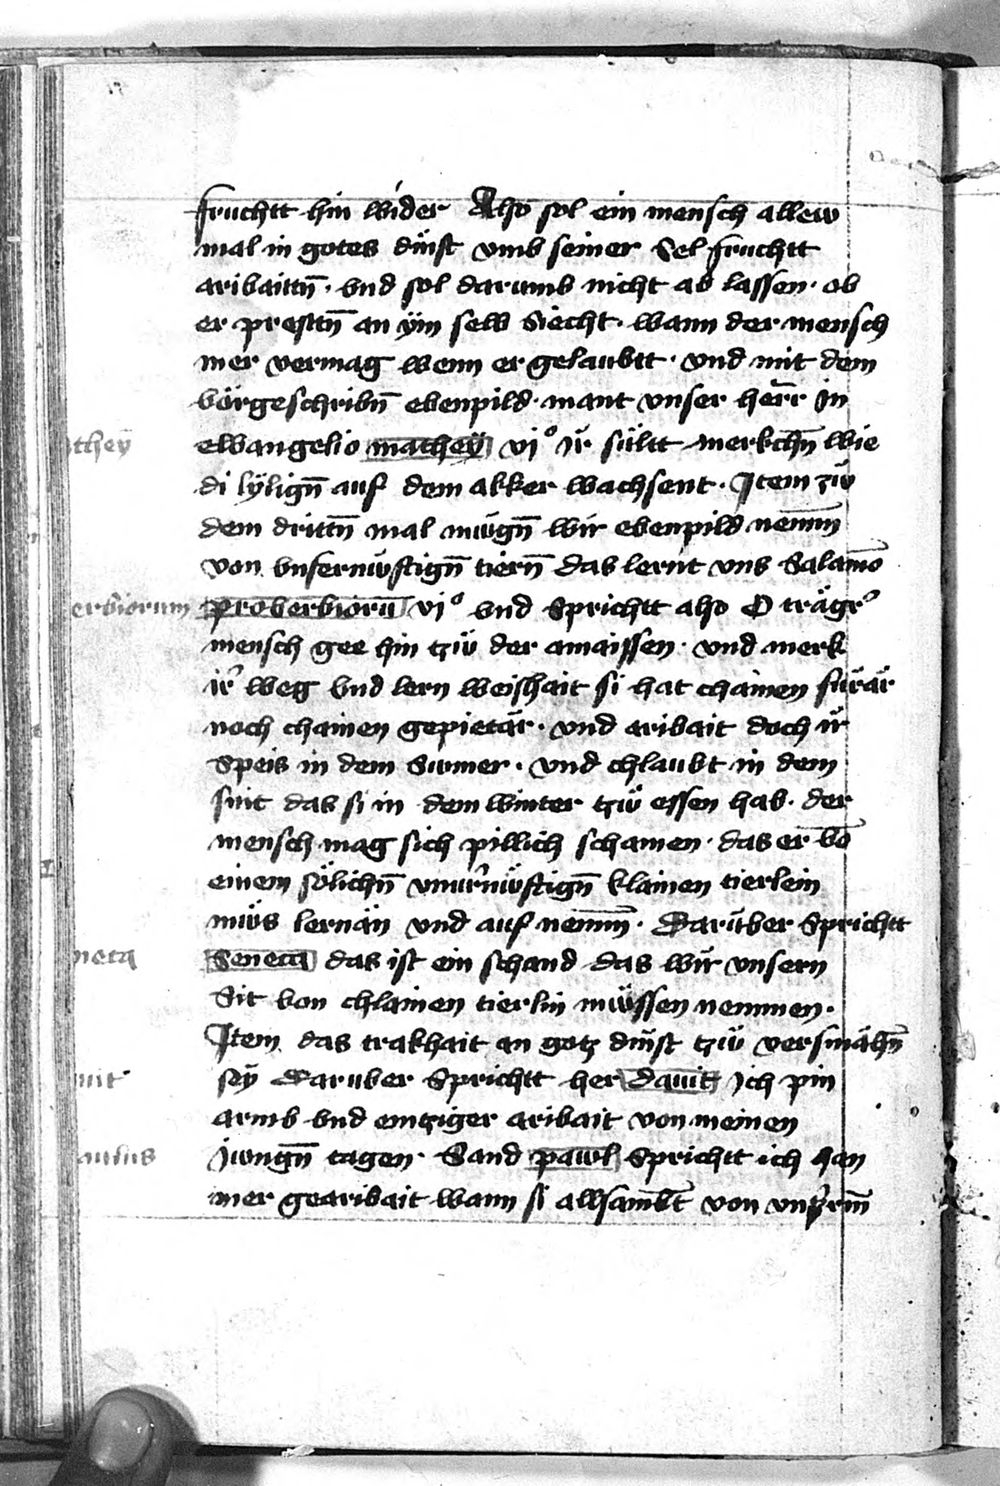 fruchtt hin wider Also sol ein mensch allew
mal in gotes dinst vmb seiner Sel fruchtt
aribaittn̄ · vnd sol darumb nicht ab lassen · ob
er prestn̄ an ÿm selb siecht · wann der mensch
mer vermag wenn er gelaubtt · vnd mit dem
vörgeschribn̄ ebenpild · mant vnser herr̄ Jn
ewangelio matheÿ vjº ir sültt merkchn̄ wie
di lÿlign̄ auf dem akker wachsent · Jtem zw̆
dem drittn̄ mal mügn̄ wir ebenpild nemm̄
von vnfernüftign̄ tiern̄ das lernt vns Salamō
proberbiorū vjº vnd Sprichtt also O trägʼ
mensch gee hin tzw̆ der amaissen · vnd merk
irʼ weg vnd lern weishait si hat chainen fürär
noch chainen gepietär · vnd aribait doch ir
Speis in dem Summer · vnd chlaubt in dem
snit das si in dem winter tzw̆ essen hab · der
mensch mag sich pillich schamen · das er vō
einem sölichn̄ vnuʼnüftign̄ klainen tierlein
müs lernän vnd auf nemm̄ · Darüber Sprichtt
Seneca das ist ein schand das wir vnsern
Sit von chlainen tierlin müssen nemmen ·
Jtem das trakhait an gotz dinst tzw̆ versmähn̄
seÿ Daruber Sprichtt her dauit Jch pin
armb vnd emtziger aribait von meinen
Jungn̄ tagen · Sand pawl Sprichtt ich han
mer gearibait wann si allsambt von vnpʼrm̄
they
erbiorum
neca
uit
aulus